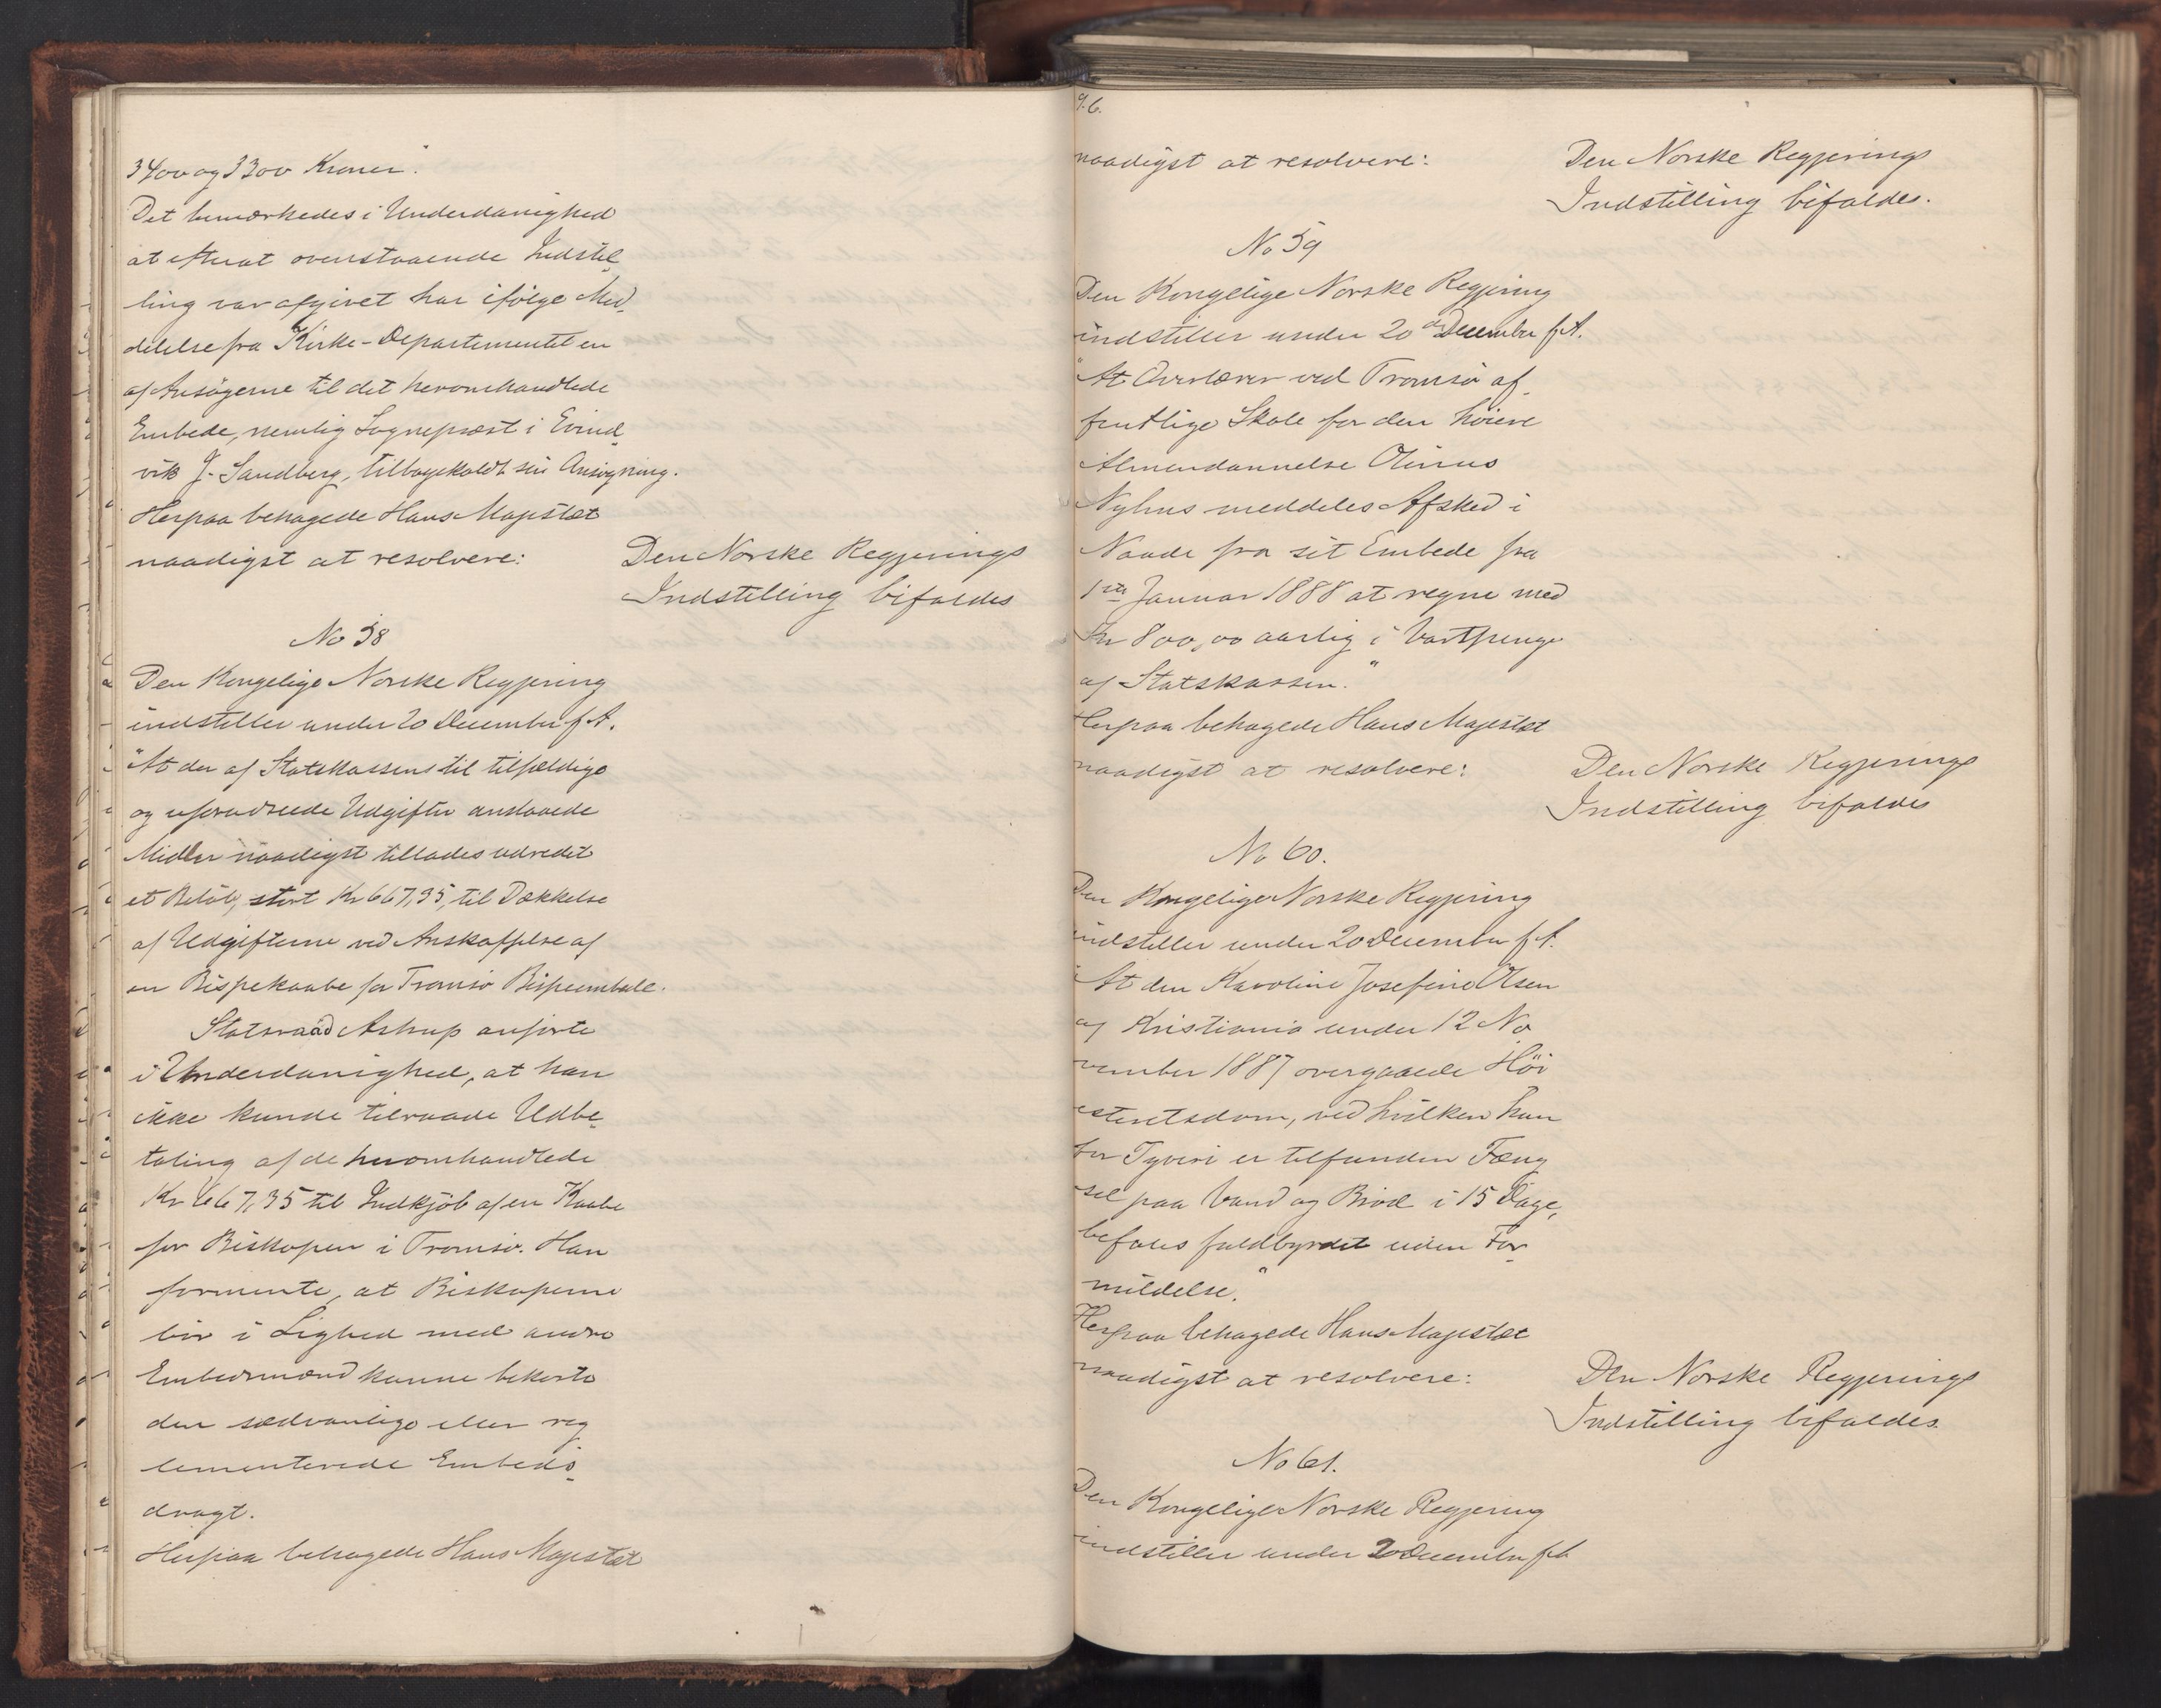 3400 og 3300 Kroner."
Det bemærkedes i Underdanighed
at efterat ovenstaaende Indstil-
ling var afgivet har ifölge Med-
delelse fra Kirke-Departementet en
af Ansögerne til det heromhandlede
Embede, nemlig Sognepræst i Evind-
vik J. Sandberg, tilbagekaldt sin Ansögning.
Herpaa behagede Hans Majestæt
naadigst at resolvere:
Den Norske Regjerings
Indstilling bifaldes
No 58
Den Kongelige Norske Regjering
indstiller under 20 December f. A.
"At der af Statskassens til tilfældige
og uforudseede Udgifter anslaaede
Midler naadigst tillades udredet
et Belöb, stort Kr 667,35, til Dækkelse
af Udgifterne ved Anskaffelse af
en Bispekaabe for Tromsö Bispeembede.
Statsraad Astrup anförte
i Underdanighed, at han
ikke kunde tilraade Udbe-
taling af de heromhandlede
Kr 667,35 til Indkjöb af en Kaabe
for Biskopen i Tromsö. Han
formente, at Biskoperne
bör i Lighed med andre
Embedsmænd kunne bekoste
den sædvanlige eller reg
lementerede Embeds-
dragt.
Herpaa behagede Hans Majestæt
96.
naadigst at resolvere:
Den Norske Regjerings
Indstilling bifaldes.
No 59
Den Kongelige Norske Regjering
indstiller under 20de December f. A.
"At Overlærer ved Tromsö of-
fentlige Skole for den höiere
Almendannelse Olinus
Nyhus meddeles Afsked i
Naade fra sit Embede fra
1ste Januar 1888 at regne med
Kr 800,00 aarlig i Vartpenge
af Statskassen."
Herpaa behagede Hans Majestæt
naadigst at resolvere:
Den Norske Regjerings
Indstilling bifaldes
No 60.
Den Kongelige Norske Regjering
indstiller under 20 December f. A.
"At den Karoline Josefine Olsen
af Kristiania under 12 No
vember 1887 overgaaede Höi
esteretsdom, ved hvilken hun
for Tyveri er tilfunden Fæng
sel paa Vand og Bröd i 15 Dage,
befales fuldbyrdet uden For-
mildelse."
Herpaa behagede Hans Majestæt
naadigst at resolvere:
Den Norske Regjerings
Indstilling bifaldes.
No 61.
Den Kongelige Norske Regjering
indstiller under 20 December f. A.